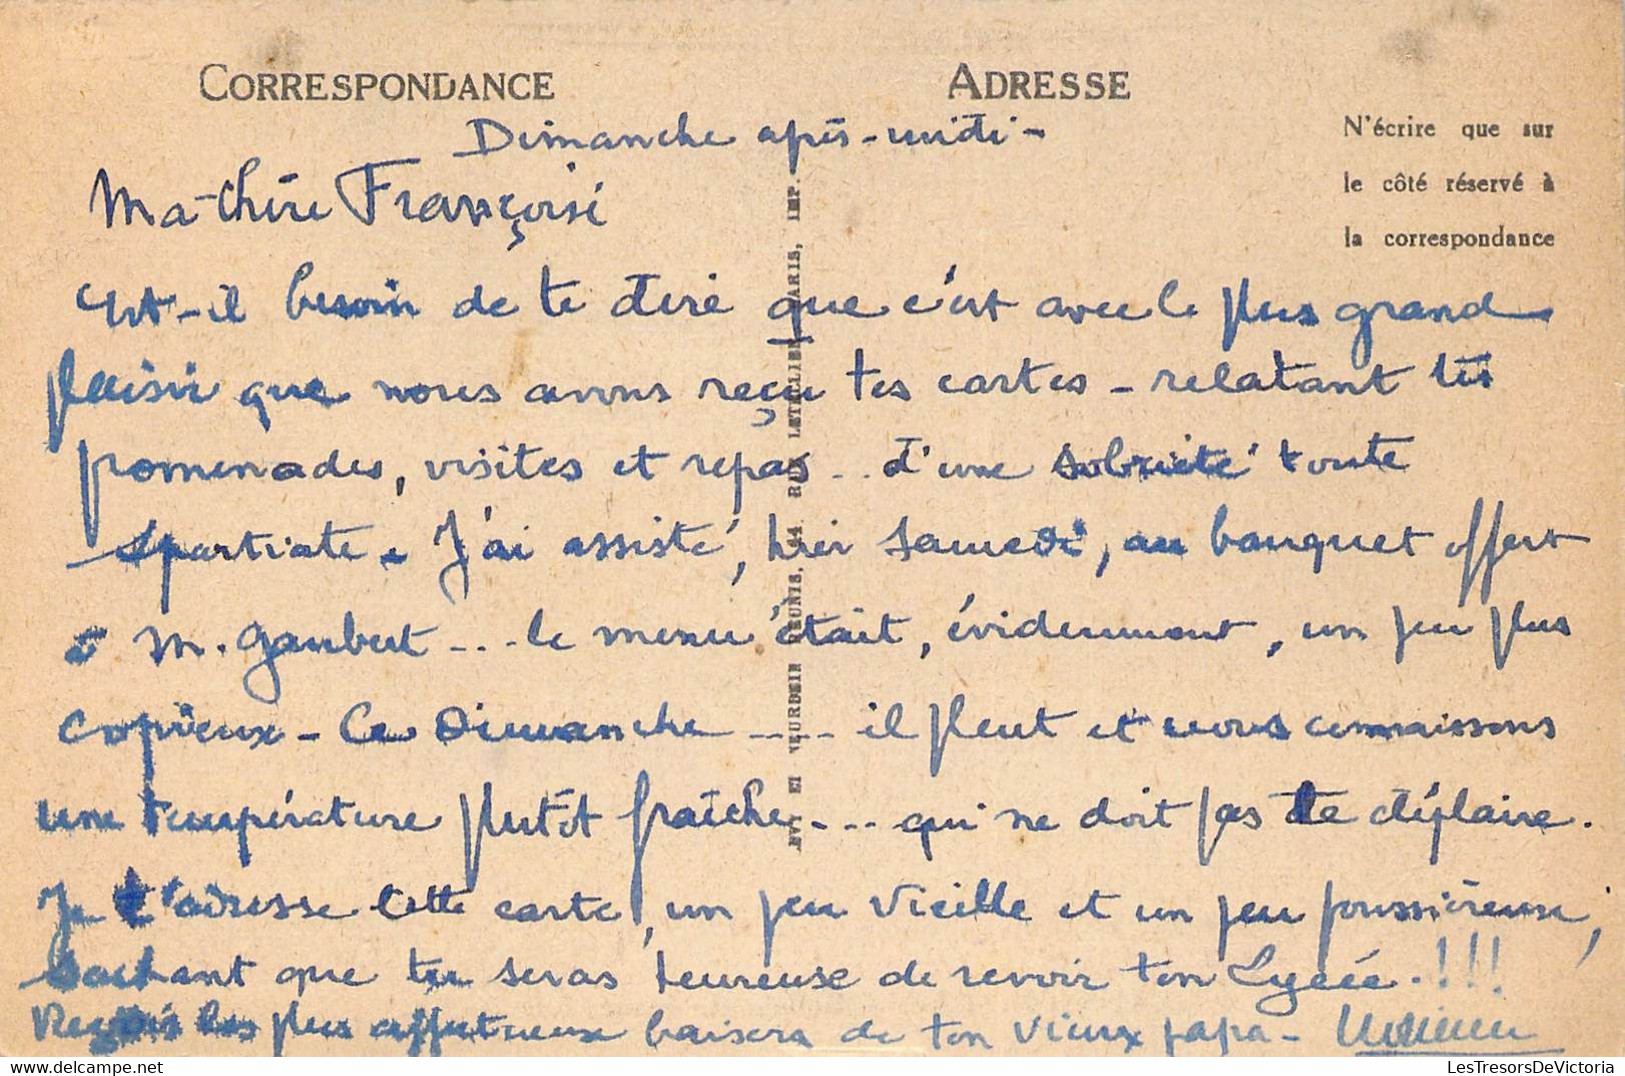 CORRESPONDANCE
ADRESSE
N'écrire que sur
le côté réservé à
la correspondance
Dimanche après-midi -
Ma chère Françoise
Est-il besoin de te dire que c'est avec le plus grand
plaisir que nous avons reçu tes cartes - relatant tes
promenades, visites et repas .. d'une sobriété toute
spartiate - J'ai assisté, hier Samedi, au banquet offert
à M. Gaubert ... le menu était, évidemment, un peu plus
copieux - Ce Dimanche .... il pleut et nous connaissons
une température plutôt fraîche .... qui ne doit pas te déplaire.
Je t'adresse cette carte, un peu vieille et un peu poussiéreuse,
sachant que tu seras heureuse de revoir ton Lycée . !!!
Reçois les plus affectueux baisers de ton vieux papa -
IMP. PARIS, LETELLIER, RUE 54
LesTresorsDeVictoria